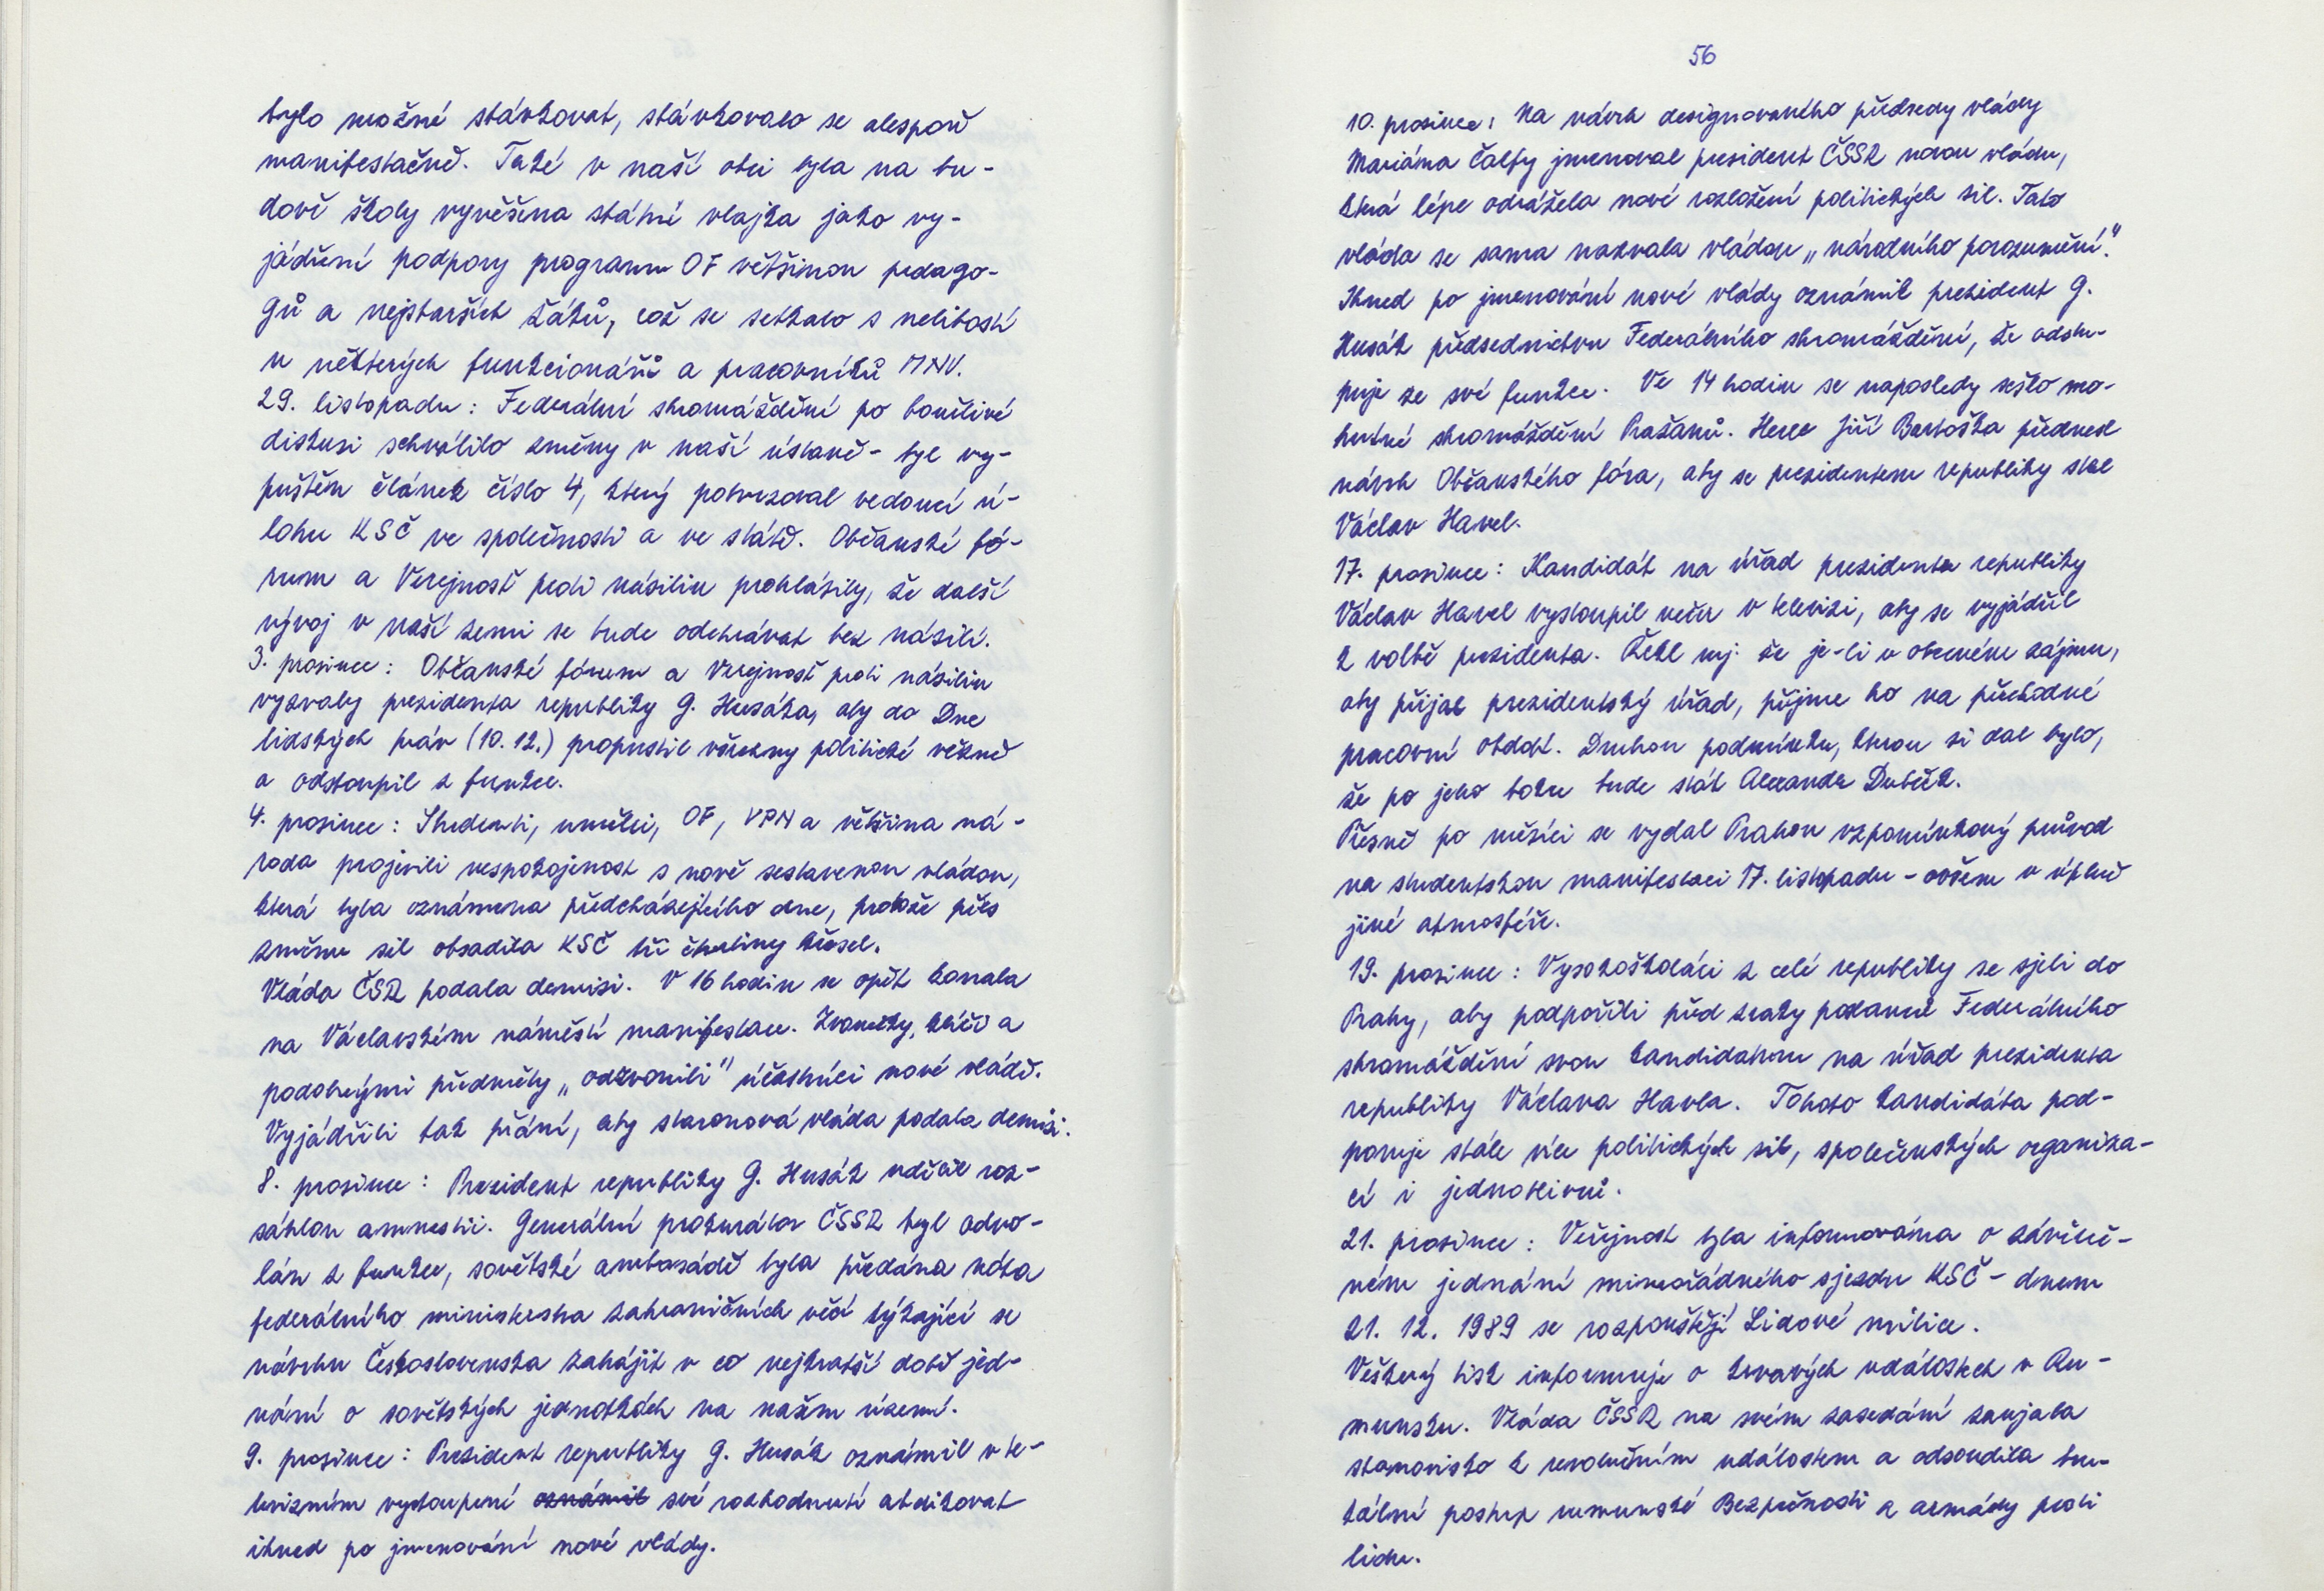 bylo možné stávkovat, stávkovalo se alespoň
manifestačně. Také v naší obci byla na bu-
dově školy vyvěšena státní vlajka jako vy-
jádření podpory programu OF většinou pedago-
gů a nejstarších žáků, což se setkalo s nelibostí
u některých funkcionářů a pracovníků MNV.
29. listopadu: Federální shromáždění po bouřlivé
diskusi schválilo změny v naší ústavě - byl vy-
puštěn článek číslo 4, který potvrzoval vedoucí ú-
lohu KSČ ve společnosti a ve státě. Občanské fó-
rum a Verejnosť proti násiliu prohlásily, že další
vývoj v naší zemi se bude odehrávat bez násilí.
3. prosince: Občanské fórum a Verejnosť proti násiliu
vyzvaly prezidenta republiky G. Husáka, aby do Dne
lidských práv (10.12.) propustil všechny politické vězně
a odstoupil z funkce.
4. prosince: Studenti, umělci, OF, VPN a většina ná-
roda projevili nespokojenost s nově sestavenou vládou,
která byla oznámena předcházejícího dne, protože přes
změnu sil obsadila KSČ tři čtvrtiny křesel.
Vláda ČSR podala demisi. V 16 hodin se opět konala
na Václavském náměstí manifestace. Zvonky, klíči a
podobnými předměty „odzvonili" účastníci nové vládě.
Vyjádřili tak přání, aby staronová vláda podala demisi.
8. prosince: Prezident republiky G. Husák udělil roz-
sáhlou amnestii. Generální prokurátor ČSSR byl odvo-
lán z funkce, sovětské ambasádě byla předána nóta
federálního ministerstva zahraničních věcí týkající se
návrhu Československa zahájit v co nejkratší době jed-
nání o sovětských jednotkách na našem území.
9. prosince: Prezident republiky G. Husák oznámil v te-
levizním vystoupení oznámil své rozhodnutí abdikovat
ihned po jmenování nové vlády.
56
10. prosince: Na návrh designovaného předsedy vlády
Mariána Čalfy jmenoval president ČSSR novou vládu,
která lépe odrážela nové rozložení politických sil. Tato
vláda se sama nazvala vládou „národního porozumění".
Ihned po jmenování nové vlády oznámil prezident G.
Husák předsednictvu Federálního shromáždění, že odstu-
puje ze své funkce. Ve 14 hodin se naposledy sešlo mo-
hutné shromáždění Pražanů. Herec Jiří Bartoška přednesl
návrh Občanského fóra, aby se prezidentem republiky stal
Václav Havel.
17. prosince: Kandidát na úřad prezidenta republiky
Václav Havel vystoupil večer v televizi, aby se vyjádřil
k volbě prezidenta. Řekl mj. že je-li v obecném zájmu,
aby přijal prezidentský úřad, přijme ho na přechodné
pracovní období. Druhou podmínkou, kterou si dal bylo,
že po jeho boku bude stát Alexandr Dubček.
Přesně po měsíci se vydal Prahou vzpomínkový průvod
na studentskou manifestaci 17. listopadu - ovšem v úplně
jiné atmosféře.
19. prosince: Vysokoškoláci z celé republiky se sjeli do
Prahy, aby podpořili před zraky poslanců Federálního
shromáždění svou kandidaturu na úřad prezidenta
republiky Václava Havla. Tohoto kandidáta pod-
poruje stále více politických sil, společenských organiza-
cí i jednotlivců.
21. prosince: Veřejnost byla informována o závěreč-
ném jednání mimořádného sjezdu KSČ - dnem
21. 12. 1989 se rozpouštějí Lidové milice.
Veškerý tisk informuje o krvavých událostech v Ru-
munsku. Vláda ČSSR na svém zasedání zaujala
stanovisko k revolučním událostem a odsoudila bru-
tální postup rumunské Bezpečnosti a armády proti
lidu.